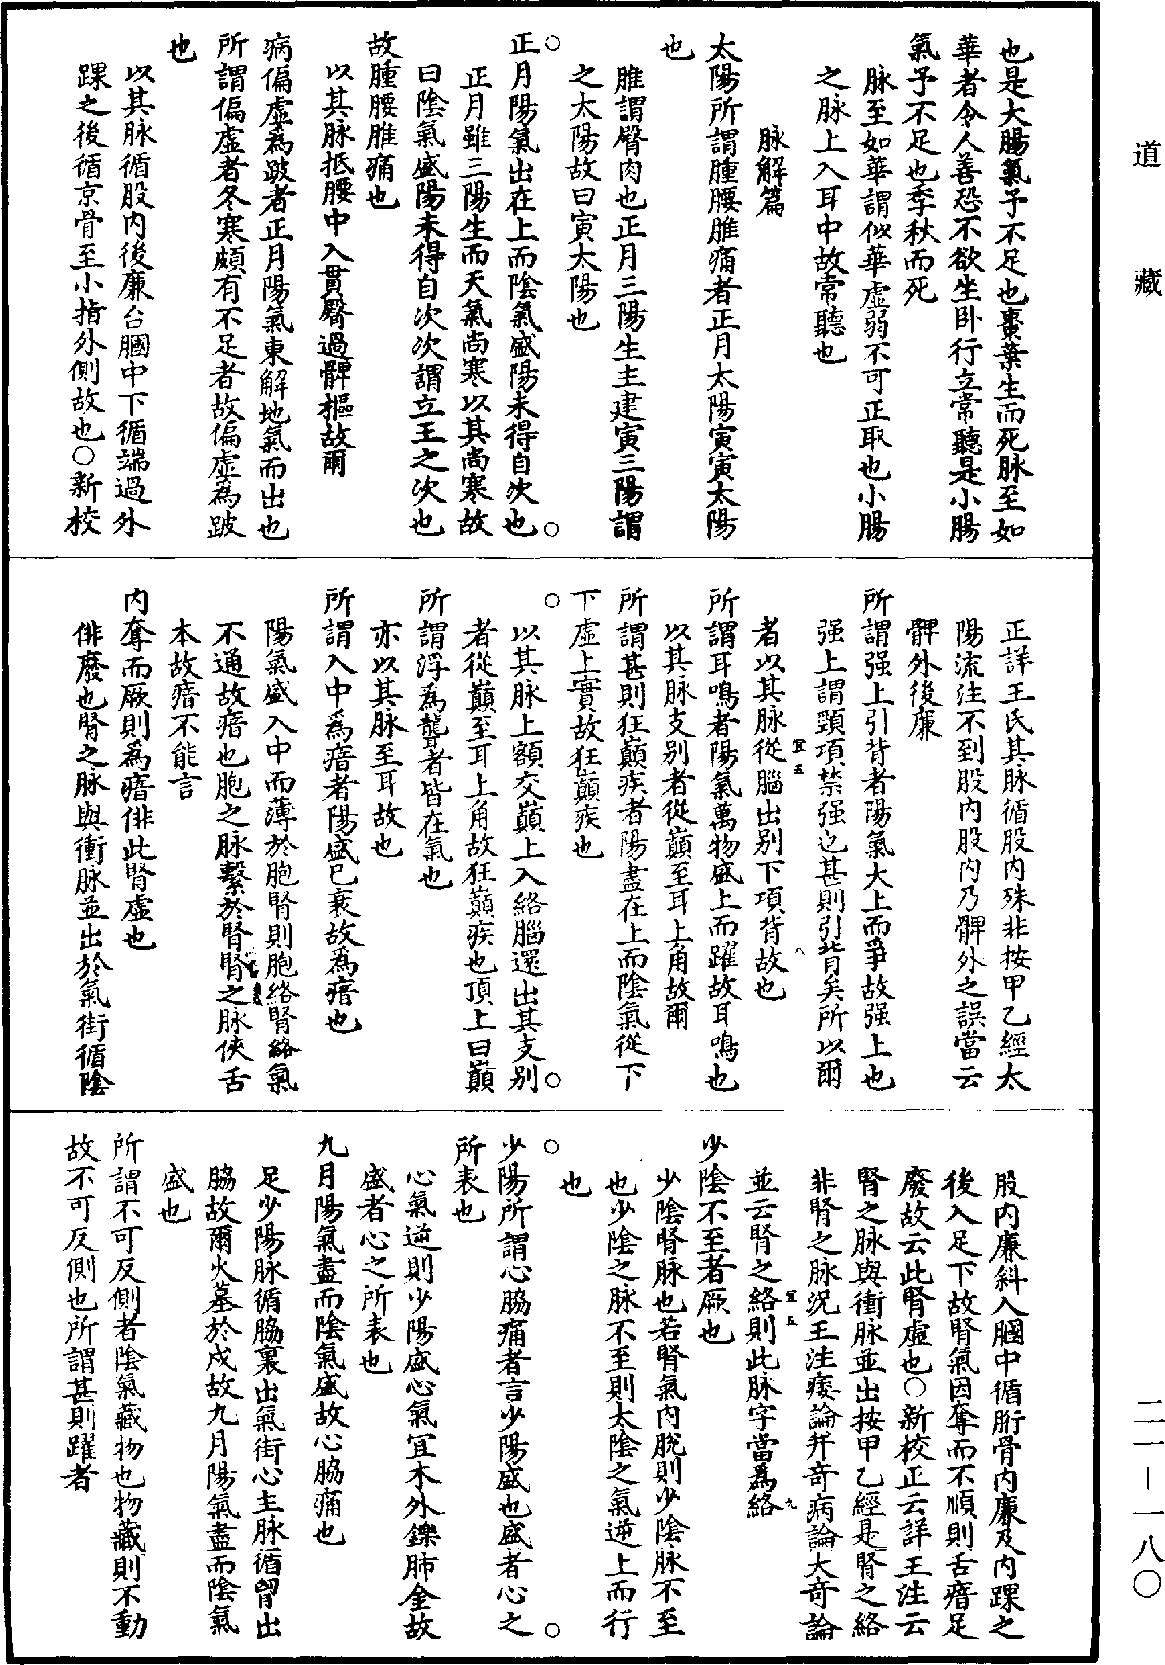 道藏
也是大腸氣予不足也棗葉生而死脉至如
華者令人善恐不欲坐卧行立常聽是小腸
氣予不足也季秋而死
脉至如華謂似華虛弱不可正取也小腸
之脉上入耳中故常聽也
脉解篇
太陽所謂腫腰脽痛者正月太陽寅寅太陽
也
脽謂臀肉也正月三陽生主建寅三陽謂
之太陽故曰寅太陽也
○正月陽氣出在上而陰氣盛陽未得自次也○
正月雖三陽生而天氣尚寒以其尚寒故
曰陰氣盛陽未得自次次謂立王之次也
故腫腰脽痛也
以其脉抵腰中入貫臀過髀樞故爾
病偏虛為跛者正月陽氣東解地氣而出也
所謂偏虛者冬寒頗有不足者故偏虛為跛
也
以其脉循股內後廉合膕中下循端過外
踝之後循京骨至小指外側故也○新校
正詳王氏其脉循股內殊非按甲乙經太
陽流注不到股內股內乃髀外之誤當云
髀外後廉
所謂强上引背者陽氣大上而爭故强上也
强上謂頸項禁强也甚則引背矣所以爾
者以其脉從腦出別下項背故也
所謂耳鳴者陽氣萬物盛上而躍故耳鳴也
以其脉支別者從巔至耳上角故爾
所謂甚則狂巔疾者陽盡在上而陰氣從下
下虛上實故狂巔疾也
○以其脉上額交巔上入絡腦還出其支別○
者從巔至耳上角故狂巔疾也頂上曰巔
所謂浮為聾者皆在氣也
亦以其脉至耳故也
所謂入中爲瘖者陽盛已衰故爲瘖也
陽氣盛入中而薄於胞腎則胞絡腎絡氣
不通故瘖也胞之脉繫於腎腎之脉俠舌
本故瘖不能言
內奪而厥則爲瘖俳此腎虛也
俳廢也腎之脉與衝脉並出於氣街循陰
股內廉斜入膕中循胻骨內廉及內踝之
後入足下故腎氣因奪而不順則舌瘖足
廢故云此腎虛也○新校正云詳王注云
腎之脉與衝脉並出按甲乙經是腎之絡
非腎之脉況王注痿論并奇病論大奇論
並云腎之絡則此脉字當爲絡
少陰不至者厥也
少陰腎脉也若腎氣內脫則少陰脉不至
也少陰之脉不至則太陰之氣逆上而行
也
○少陽所謂心脇痛者言少陽盛也盛者心之○
所表也
心氣逆則少陽盛心氣宜木外鑠肺金故
盛者心之所表也
九月陽氣盡而陰氣盛故心脇痛也
足少陽脉循脇裏出氣街心主脉循胷出
脇故爾火墓於戌故九月陽氣盡而陰氣
盛也
所謂不可反側者陰氣藏物也物藏則不動
故不可反側也所謂甚則躍者
二一—一八〇